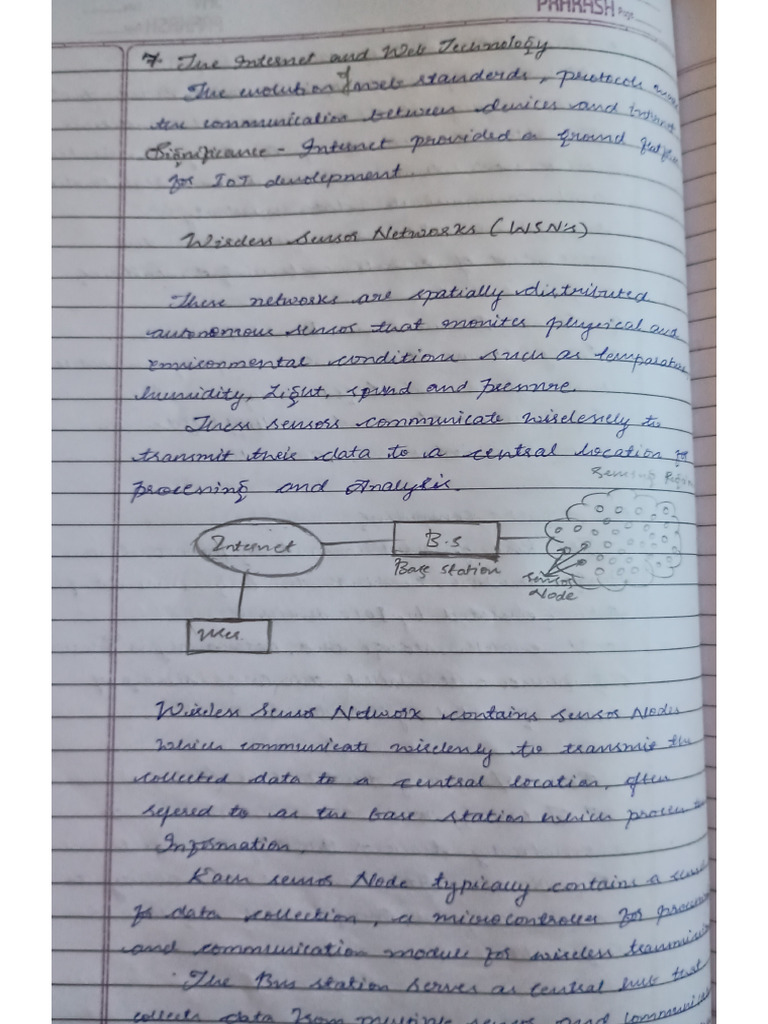 PRAKASH Page
7. The Internet and Web Technology
The evolution of web standerds, protocols
the communication between devices and
Significance - Internet provided a ground
for IoT development.
Wireless Sensor Networks (WSN's)
These networks are spatially distributed
autonomous sensor that monites physical and
Environmental conditions such as
humidity, Light, sound and pressure.
These sensors communicate wirelessly to
transmit their data to a central location for
processing and Analysis.
Sensing
Internet
B.S
Base station
Sensor
Node
Wireless Sensor Network contains sensor Nodes
which communicate wirelessly to transmit the
collected data to a central location, often
refered to as the base station which process
Information.
Each sensor Node typically contains a
for data collection, a microcontroller for
and communication module for wireless
The Bus station serves as central hub that
collects data from multiple sensors and